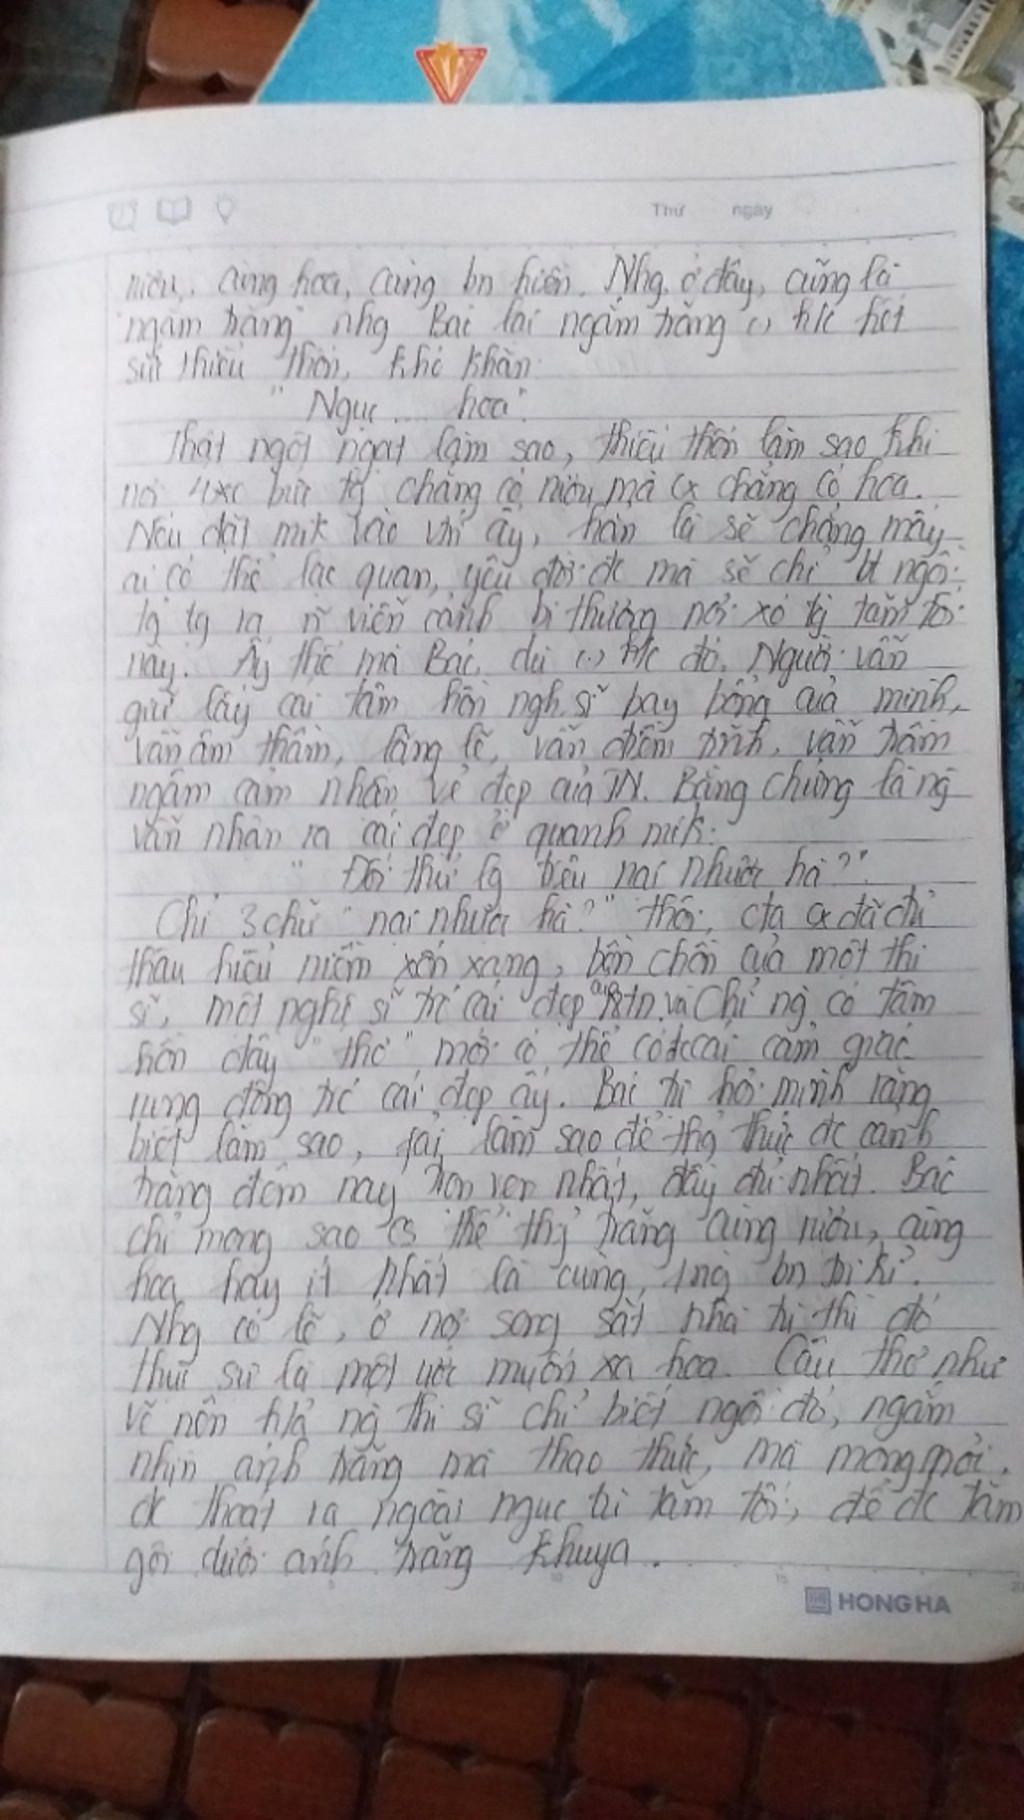 Thứ ngày
rượu, cùng hoa, cùng bn hiền. Nhg ở đây, cũng là
"ngắm trăng" nhg Bác lại ngắm trăng (.) h/c hết
sức thiếu thốn, khó khăn.
" Ngục .... hoa".
Thật ngột ngạt làm sao, thiếu thốn làm sao khi
nơi 4 bức tg chẳng có rượu mà cx chẳng có hoa.
Nếu đặt mik vào vtrí ấy, hẳn là sẽ chẳng mấy
ai có thể lạc quan, yêu đời đc mà sẽ chỉ bt ngồi
tg tg ra n~ viễn cảnh bi thương nơi xó tù tăm tối
này. Ấy thế mà Bác, dù (.) h/c đó, Người vẫn
giữ lấy cái tâm hồn nghệ sĩ bay bổng của mình,
vẫn âm thầm, lặng lẽ, vẫn điềm tĩnh, vẫn trầm
ngâm cảm nhận vẻ đẹp của TN. Bằng chứng là ng
vẫn nhận ra cái đẹp ở quanh mik:
" Đối thử lg tiêu nại nhược hà?"
Chỉ 3 chữ " nại nhược hà?" thôi, cta cx đã đủ
thấu hiểu niềm xốn xang, bồn chồn của một thi
sĩ, một nghệ sĩ trc cái đẹp của tn. và Chỉ ng có tâm
hồn đầy "thơ" mới có thể có đc cái cảm giác
rung động trc cái đẹp ấy. Bác tự hỏi mình rằng
biết làm sao, phải làm sao để thg thức đc cảnh
trăng đêm nay trọn vẹn nhất, đầy đủ nhất. Bác
chỉ mong sao có thể thg trăng cùng rượu, cùng
hoa hay ít nhất là cùng 1 ng bn tri kỉ.
Nhg có lẽ, ở nơi song sắt nhà tù thì đó
thực sự là một ước muốn xa hoa. Câu thơ như
vẽ nên h/ả ng thi sĩ chỉ biết ngồi đó, ngắm
nhìn ánh trăng mà thao thức, mà mong mỏi
đc thoát ra ngoài ngục tù tăm tối, để đc tắm
gội dưới ánh trăng khuya.
HONG HA